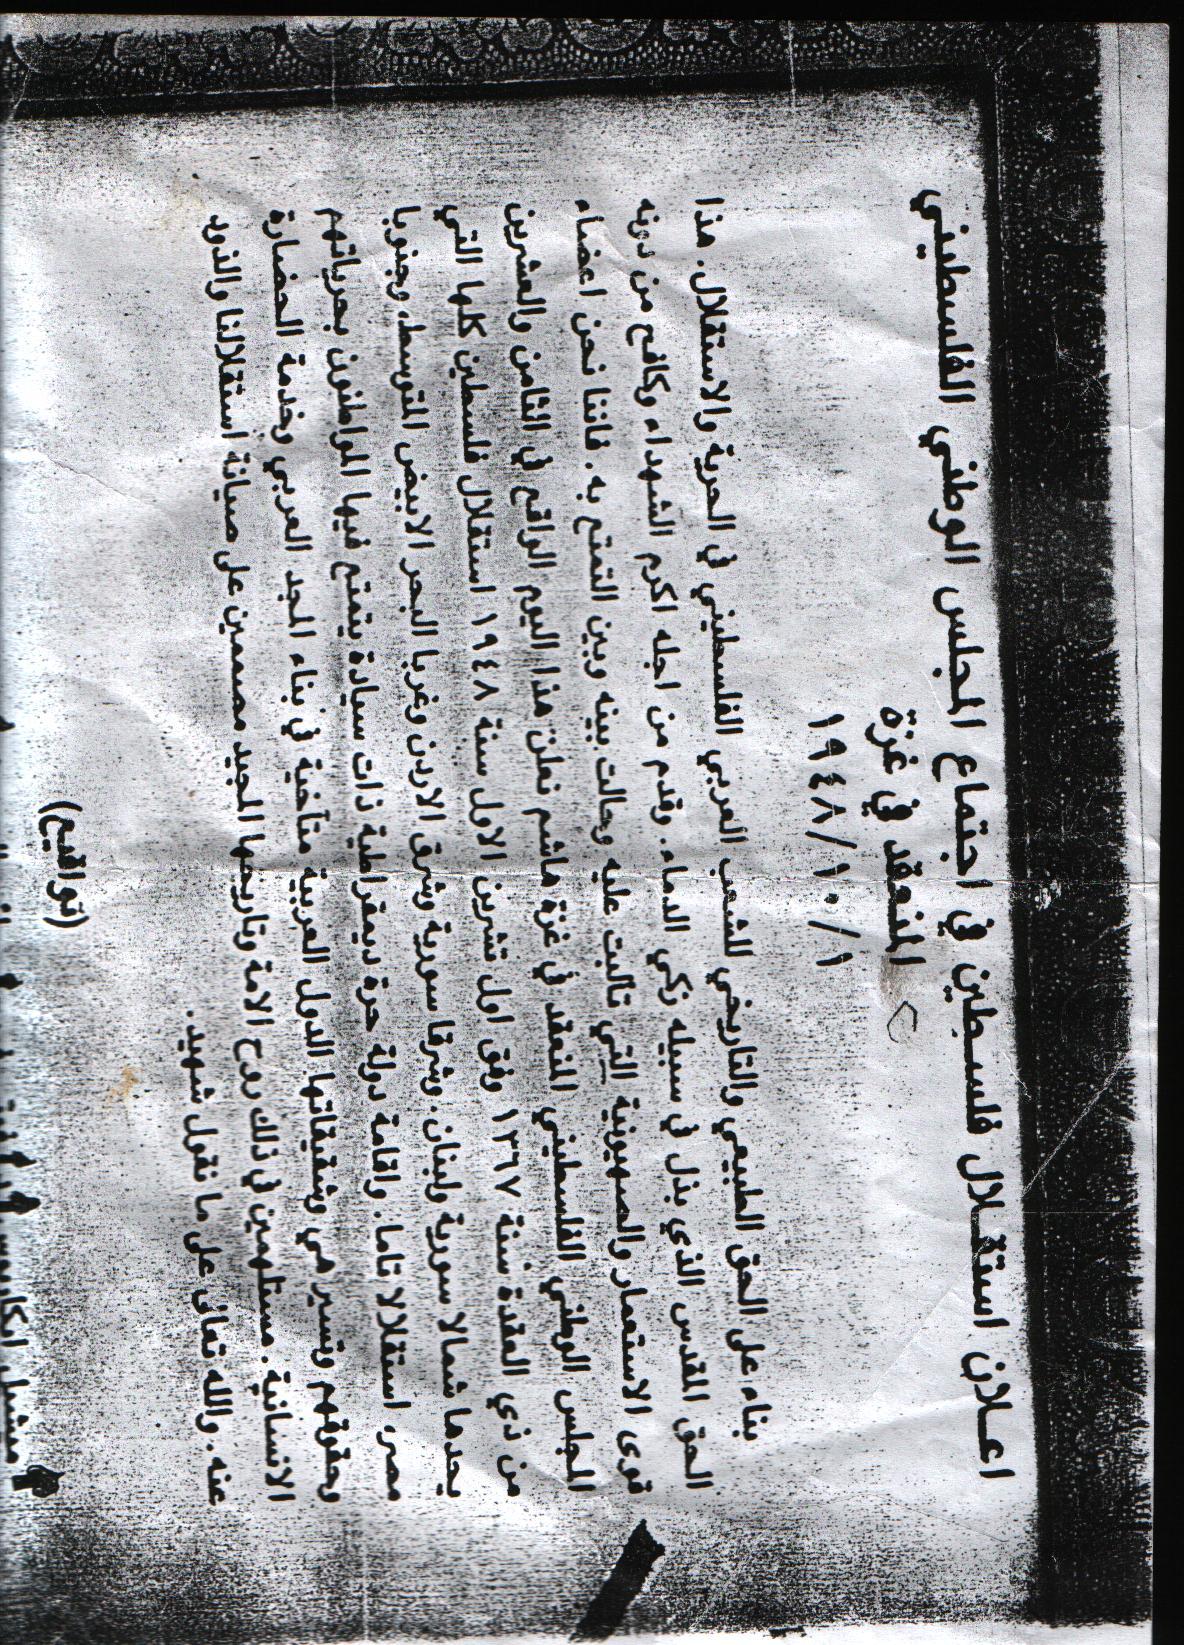 اعلان استقلال فلسطين في اجتماع المجلس الوطني الفلسطيني
المنعقد في غزة
١٩٤٨/١٠/١
بناء على الحق الطبيعي والتاريخي للشعب العربي الفلسطيني في الحرية والاستقلال. هذا
الحق المقدس الذي بذل في سبيله زكي الدماء. وقدم من اجله اكرم الشهداء وكافح من دونه
قوى الاستعمار والصهيونية التي تألبت عليه وحالت بينه وبين التمتع به. فاننا نحن اعضاء
المجلس الوطني الفلسطيني المنعقد في غزة هاشم نعلن هذا اليوم الواقع في الثامن والعشرين
من ذي القعدة سنة ١٣٦٧ وفق اول تشرين الاول سنة ١٩٤٨ استقلال فلسطين كلها التي
يحدها شمالا سورية ولبنان. وشرقا سورية وشرق الاردن وغربا البحر الابيض المتوسط. وجنوبا
مصر، استقلالا تاما. واقامة دولة حرة ديمقراطية ذات سيادة يتمتع فيها المواطنون بحرياتهم
وحقوقهم وتسير هي وشقيقاتها الدول العربية متآخية في بناء المجد العربي وخدمة الحضارة
الانسانية. مستلهمين في ذلك روح الامة وتاريخها المجيد مصممين على صيانة استقلالنا والذود
عنه. والله تعالى على ما نقول شهيد.
(تواقيع)